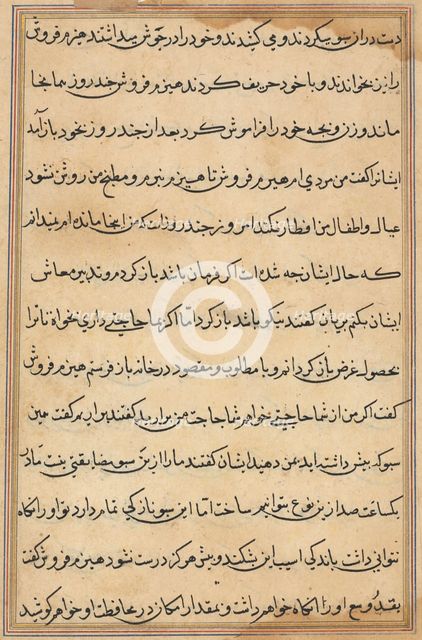 دست دراز سبو میکردند و می کشیدند و خود را در جوش میداشتند هیزم فروش
را نیز بخواندند و با خود حریف کردند هیزم فروش چند روز همانجا
ماند و زن و بچه خود را فراموش کرد بعد از چند روز بخود باز آمد
ایشانرا گفت من مردی ام هیزم فروش تا هیزم نبرم و مطبخ من روشن نشود
عیال و اطفال من افطار نکنند امروز چند روز است که من اینجا مانده ام نمیدانم
که حال ایشان چه شده است اگر فرمان باشد باز گردم و تدبیر معاش
ایشان بکنم پریان گفتند نیکو باشد باز گرد اما اگر بما حاجتی داری بخواه تا ترا
بحصول غرض باز گردانیم و با مطلوب و مقصود در خانه باز فرستیم هیزم فروش
گفت اگر من از شما حاجتی خواهم شما حاجت من برارید گفتند براریم گفت همین
سبو که پیش داشته اید بمن دهید ایشان گفتند ما را ازین سبو مضایقتی نیست ما در
یکساعت صد ازین نوع بتوانیم ساخت اما این سبو نازکی تمام دارد تو او را نگاه
نتوانی داشت باندک آسیب این بشکند و بیش هرگز درست نشود هیزم فروش گفت
بقدر وسع او را نگاه خواهم داشت و بمقدار امکان در محافظت او خواهم کوشید